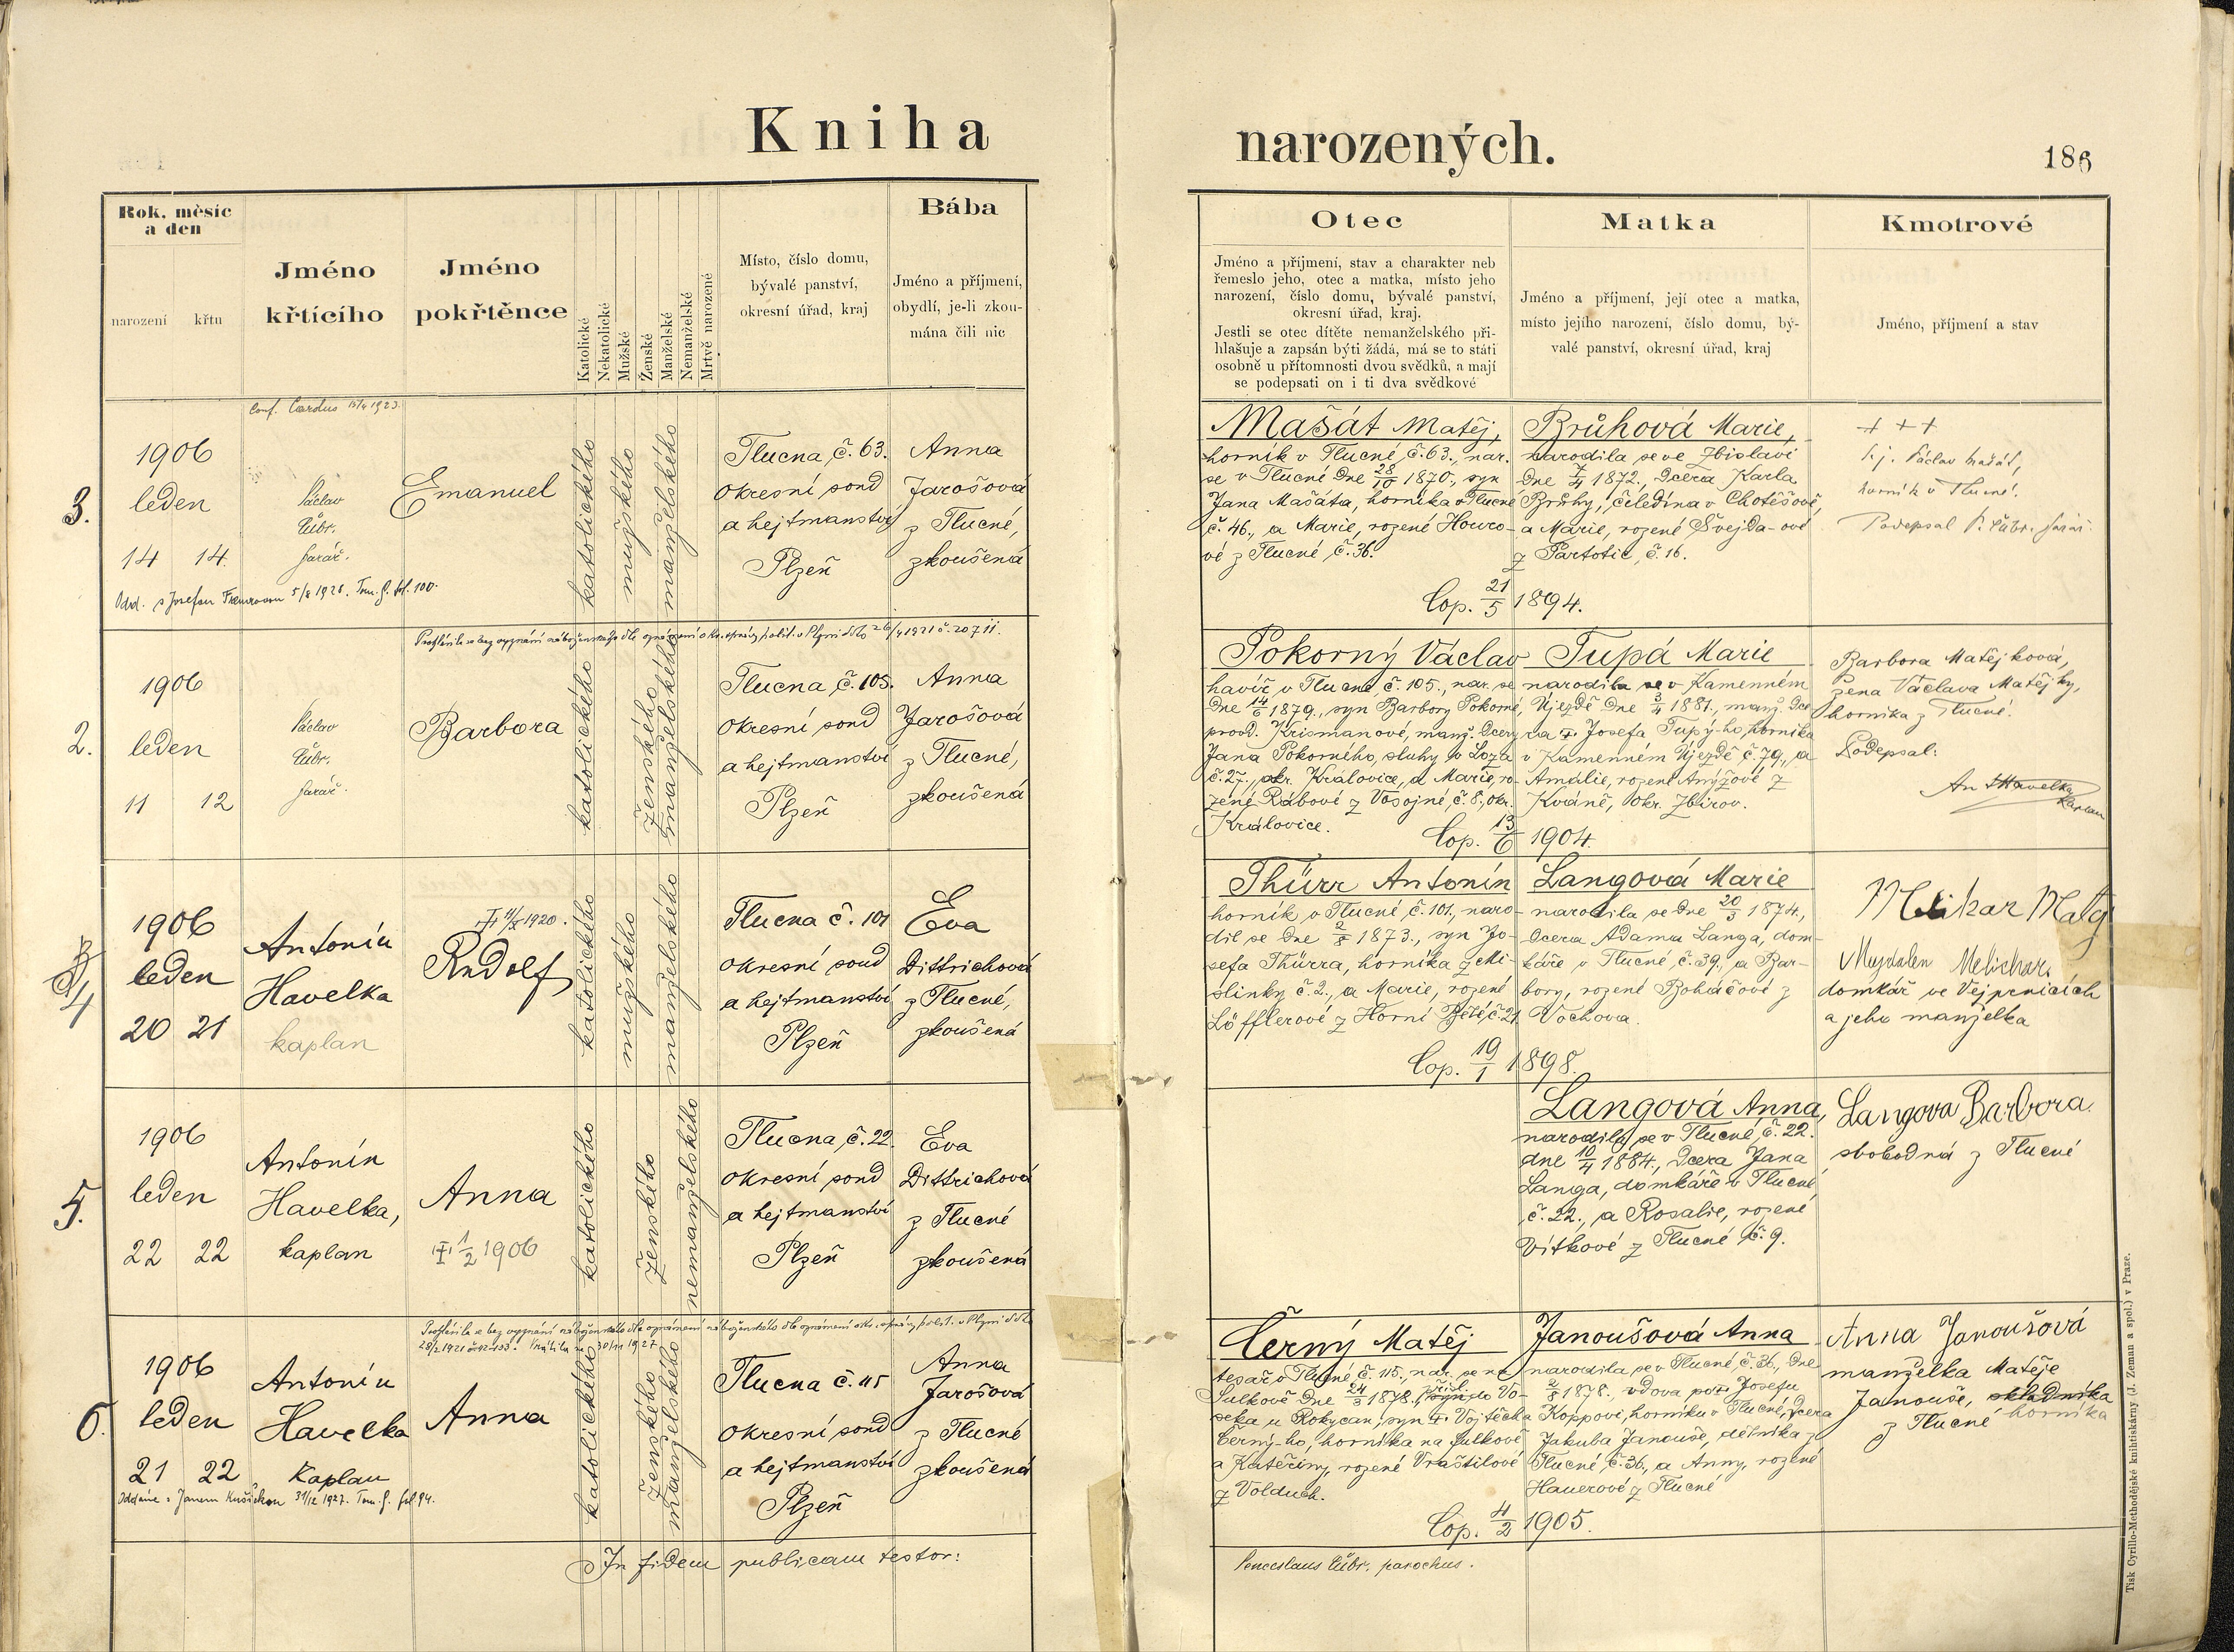 Kniha
narozených.
186
Rok, měsíc
a den
narození křtu
Jméno
křtícího
Jméno
pokřtěnce
Katolické
Nekatolické
Mužské
Ženské
Manželské
Nemanželské
Mrtvě narozené
Místo, číslo domu,
bývalé panství,
okresní úřad, kraj
Bába
Jméno a příjmení,
obydlí, je-li zkou-
mána čili nic
Otec
Jméno a příjmení, stav a charakter neb
řemeslo jeho, otec a matka, místo jeho
narození, číslo domu, bývalé panství,
okresní úřad, kraj.
Jestli se otec dítěte nemanželského při-
hlašuje a zapsán býti žádá, má se to státi
osobně u přítomnosti dvou svědků, a mají
se podepsati on i ti dva svědkové
Matka
Jméno a příjmení, její otec a matka,
místo jejího narození, číslo domu, bý-
valé panství, okresní úřad, kraj
Kmotrové
Jméno, příjmení a stav
3.
1906
leden
14 14.
Václav
Čubr.
farář.
Emanuel
katolického
mužského
manželského
Tlucna, č. 63.
Okresní soud
a hejtmanství
Plzeň
Anna
Jarošová
z Tlucné,
zkoušená
Mašát Matěj,
horník v Tlucné, č. 63., nar.
se v Tlucné dne 28/10 1870., syn
Jana Mašáta, horníka v Tlucné
č. 46., a Marie, rozené Houro-
vé z Tlucné, č. 36.
Brůhová Marie,
narodila se ve Zbislavi
dne 7/4 1872., dcera Karla
Brůhy, čeledína v Chotěšově,
a Marie, rozené Švejda-ové
z Partotic, č. 16.
Cop. 21/5 1894.
+ + +
Václav Mašát,
horník v Tlucné.
Podepsal P. Čubr. farář.
2.
1906
leden
11 12
Václav
Čubr.
farář.
Barbora
katolického
ženského
manželského
Tlucna, č. 105.
Okresní soud
a hejtmanství
Plzeň
Anna
Jarošová
z Tlucné,
zkoušená
Pokorný Václav
havíř v Tlucné, č. 105., nar. se
dne 14/6 1879., syn Barbory Pokorné,
provd. Krismanové, manž. dcery
Jana Pokorného, sluhy v Loza
č. 27., okr. Kralovice, a Marie, ro-
zené Rábové z Vosojné, č. 8., okr.
Kralovice.
Tupá Marie
narodila se v Kamenném
Újezdě dne 3/4 1881., manž. dce-
ra Josefa Tupý-ho, horníka
v Kamenném Újezdě č. 79., a
Amálie, rozené Anýžové z
Kváně, okr. Zbirov.
Cop. 13/6 1904.
Barbora Matějková,
žena Václava Matějky,
horníka z Tlucné.
Podepsal:
Ant Havelka
kaplan
4
1906
leden
20 21
Antonín
Havelka
kaplan
1920.
Rudolf
katolického
mužského
manželského
Tlucna č. 101
okresní soud
a hejtmanství
Plzeň
Eva
Dittrichová
z Tlucné,
zkoušená
Thürr Antonín
horník v Tlucné, č. 101., naro-
dil se dne 2/8 1873., syn Jo-
sefa Thürra, horníka z Mi-
slinky č. 2., a Marie, rozené
Löfflerové z Horní Bělé, č. 21
Langová Marie
narodila se dne 20/3 1874.,
dcera Adama Langa, dom-
káře v Tlucné, č. 39., a Bar-
bory, rozené Boháčové z
Vochova.
Cop. 19/1 1898.
Melichar Matěj
Magdalen Melichar
domkář ve Vejprnicích
a jeho manželka
5.
1906
leden
22 22
Antonín
Havelka,
kaplan
Anna
1/2 1906
katolického
ženského
nemanželského
Tlucna, č. 22.
okresní soud
a hejtmanství
Plzeň
Eva
Dittrichová
z Tlucné
zkoušená
Langová Anna,
narodila se v Tlucné, č. 22.
dne 10/4 1884., dcera Jana
Langa, domkáře v Tlucné
č. 22., a Rosalie, rozené
Vítkové z Tlucné č. 9.
Langova Barbora
svobodná z Tlucné
6.
1906
leden
21 22
Antonín
Havelka
Kaplan
Anna
katolického
ženského
manželského
Tlucna č. 115
okresní soud
a hejtmanství
Plzeň
Anna
Jarošová
z Tlucné
zkoušená
Černý Matěj
tesař v Tlucné č. 115., nar. se na
Sulkově dne 24/3 1878., přísl. do Vo-
seka u Rokycan, syn Vojtěcha
Černý-ho, horníka na Sulkově
a Kateřiny, rozené Vraštilové
z Volduch.
Janoušová Anna
narodila se v Tlucné, č. 36., dne
2/8 1878., vdova po Josefu
Koppovi, horníku v Tlucné, dcera
Jakuba Janouše, dělníka z
Tlucné, č. 36., a Anny, rozené
Hauerové z Tlucné
Cop. 4/2 1905.
Anna Janoušová
manželka Matěje
Janouše,
horníka
z Tlucné
In fidem publicam testor:
Venceslaus Čubr, parochus.
Tisk Cyrillo-Methodějské knihtiskárny (J. Zeman a spol.) v Praze.